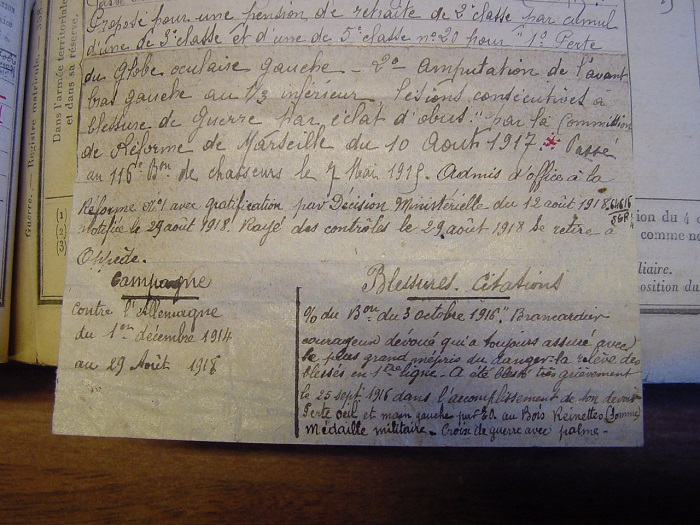 Proposé pour une pension de retraite de 2e classe par cumul
d'une de 3e classe et d'une de 5e classe no 20 pour "1o Perte
du Globe oculaire gauche - 2o Amputation de l'avant
bras gauche au 1/3 inférieur lésions consécutives à
blessure de Guerre par éclat d'obus." par la Commission
de Réforme de Marseille du 10 Août 1917 * Passé
au 116e Bon de chasseurs le 7 Mai 1915. Admis d'office à la
Réforme no 1 avec gratification par Décision Ministérielle du 12 août 1918
notifiée le 29 août 1918. Rayé des contrôles le 29 août 1918 Se retire à
Oppède.
Campagne
contre l'Allemagne
du 1er décembre 1914
au 29 Août 1918
Blessures. Citations
% du Bon du 3 octobre 1916. "Brancardier
courageux dévoué qui a toujours assuré avec
le plus grand mépris du danger la relève des
blessés en 1ère ligne. A été blessé très grièvement
le 25 sept. 1916 dans l'accomplissement de son devoir
Perte oeil et main gauche par EO au Bois Reinettes (Somme)
Médaille militaire - Croix de guerre avec palme -
Guerre. — Registre matricule. —
Dans l'armée territoriale
et dans sa réserve,
(1)
(2)
(3)
ion du 4
comme no
liaire.
position du